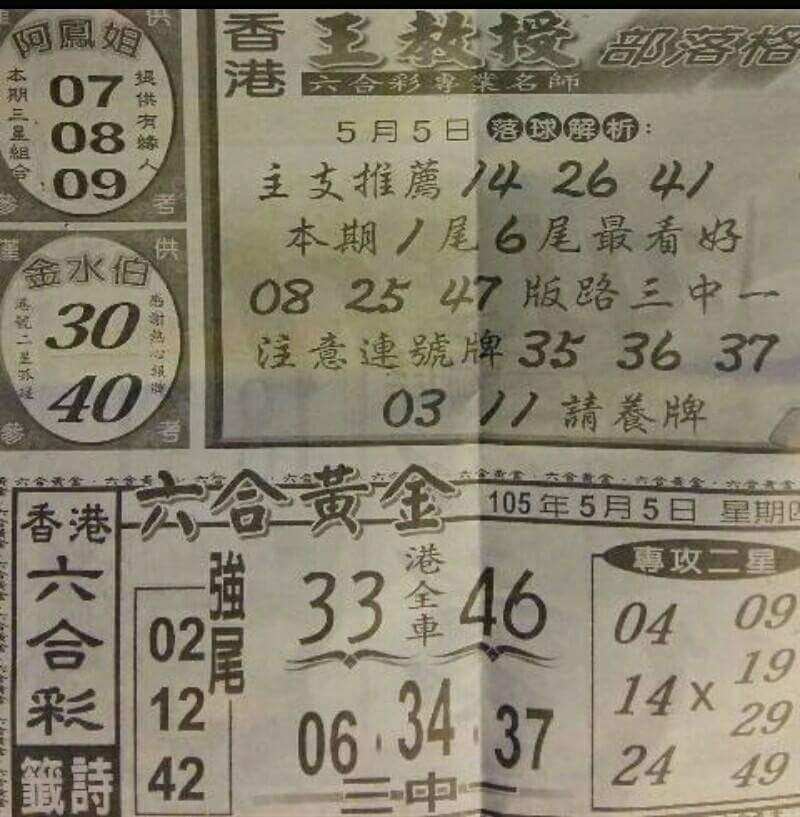 僅供
阿鳳姐
本期三星組合
07
08
09
提供有緣人
參考
僅供
金水伯
港號二星孤碰
30
40
感謝熱心報牌
參考
香港 王教授 部落格
六合彩專業名師
5月5日 落球解析：
主支推薦 14 26 41
本期 1 尾 6 尾最看好
08 25 47 版路三中一
注意連號牌 35 36 37
03 11 請養牌
六合黃金·六合黃金·六合黃金
六合黃金
105年5月5日 星期四
香港
六合彩
籤詩
強尾
02
12
42
港全車
33 46
06 · 34 · 37
三·中·一
專攻二星
04 09
14 x 19
29
24 49